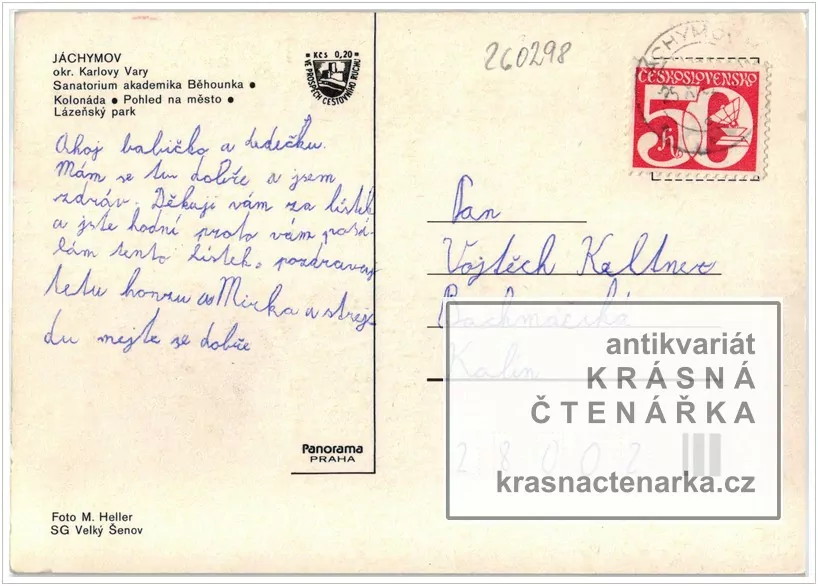 JÁCHYMOV
okr. Karlovy Vary
Sanatorium akademika Běhounka ●
Kolonáda ● Pohled na město ●
Lázeňský park
Kčs 0,20
VE PROSPĚCH CESTOVNÍHO RUCHU
260298
JÁCHYMOV
ČESKOSLOVENSKO
50 h
Ahoj babičko a dedečku.
Mám se tu dobře a jsem
zdráv. Děkuji vám za lístek
a jste hodní proto vám posí-
lám tento lístek. pozdravuj
tetu honzu a Mirka a strej
du mejte se dobře
Pan
Vojtěch Keltner
Bachmačská
Kolín
28002
Panorama
PRAHA
Foto M. Heller
SG Velký Šenov
antikvariát
KRÁSNÁ
ČTENÁŘKA
krasnactenarka.cz